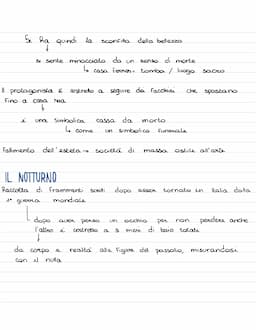 Si ha quindi la sconfitta della bellezza
si sente minacciato da un senso di morte
↳ casa terreni tomba / luogo sacro
Il protagonista è costretto a seguire dei facchini che spostano
fino a casa sua
è una simbolica cassa da morto
↳ come un simbolico funerale
Fallimento dell'esteta → società di massa ostile all'arte
IL NOTTURNO
Raccolta di frammenti scritti dopo esser tornato in Italia dalla
1ª guerra mondiale
↳ dopo aver perso un occhio per non perdere anche
l'altro è costretto a 3 mesi di buio totale
da corpo e realtà alle figure del passato, misurandosi
con il nulla